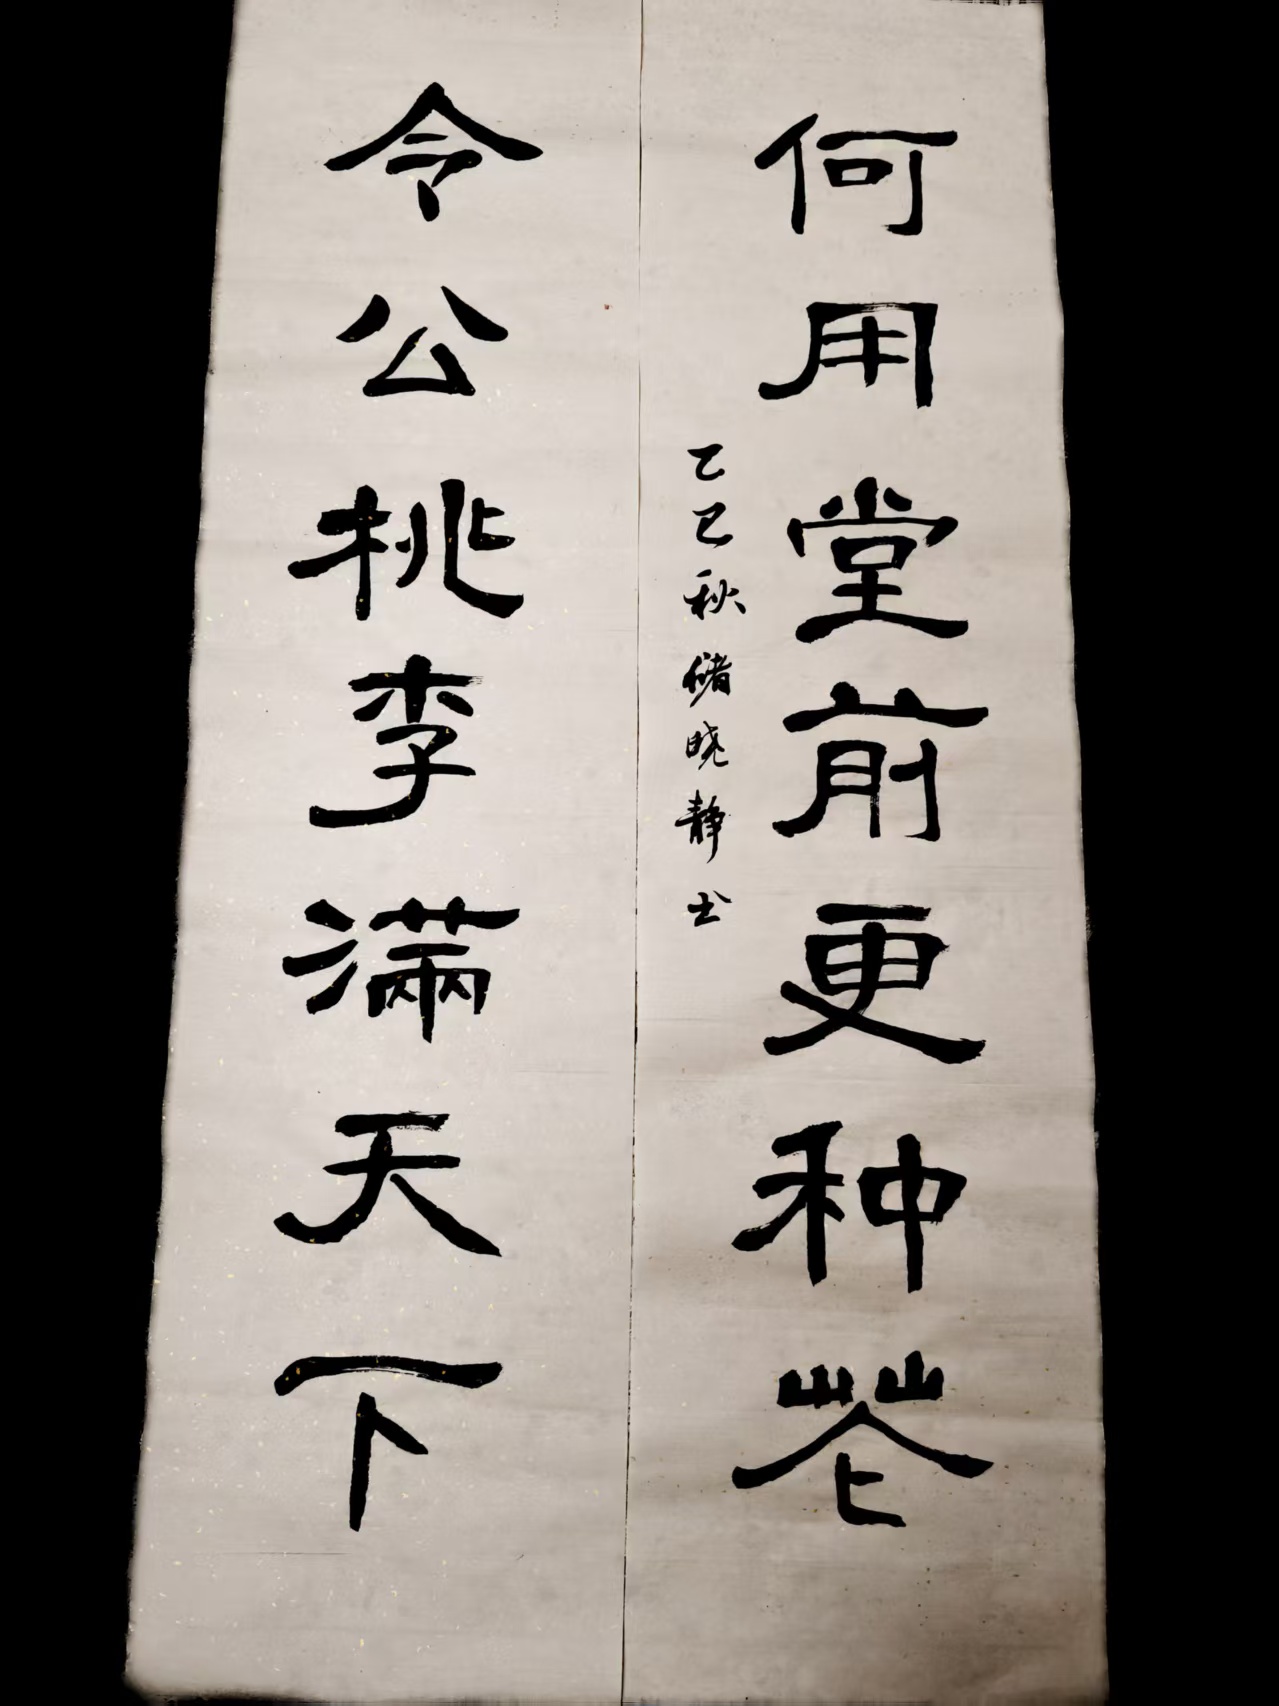 令公桃李满天下
何用堂前更种花
乙巳秋储晓静书